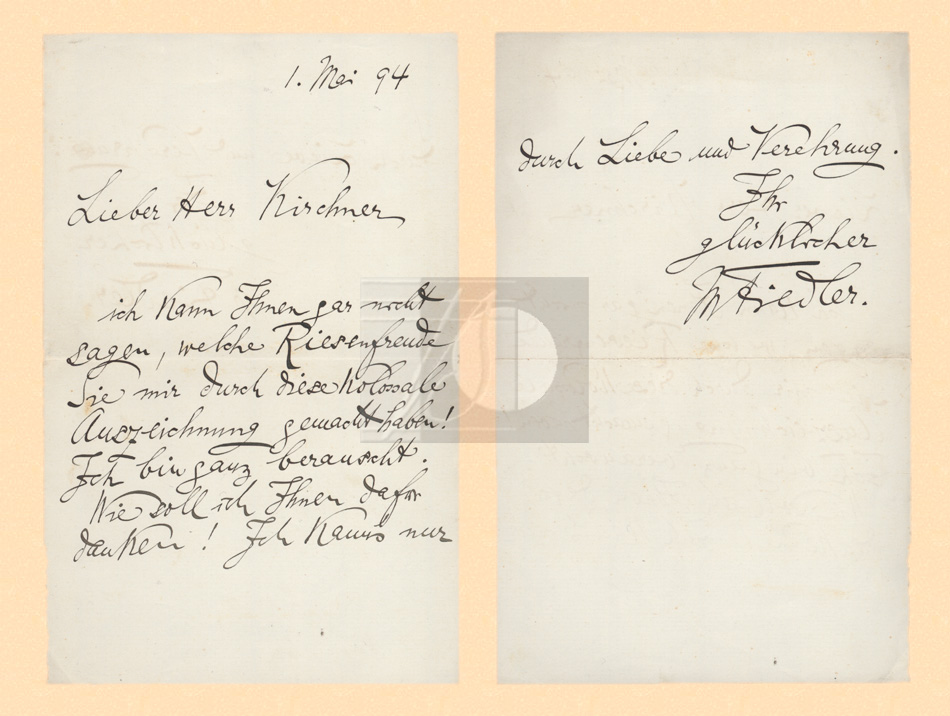 1. Mai 94
Lieber Herr Kirchner
ich kann Ihnen gar nicht
sagen, welche Riesenfreude
Sie mir durch diese kolossale
Auszeichnung gemacht haben!
Ich bin ganz berauscht.
Wie soll ich Ihnen dafür
danken! Ich kann's nur
durch Liebe und Verehrung.
Ihr
glücklicher
M Fiedler.